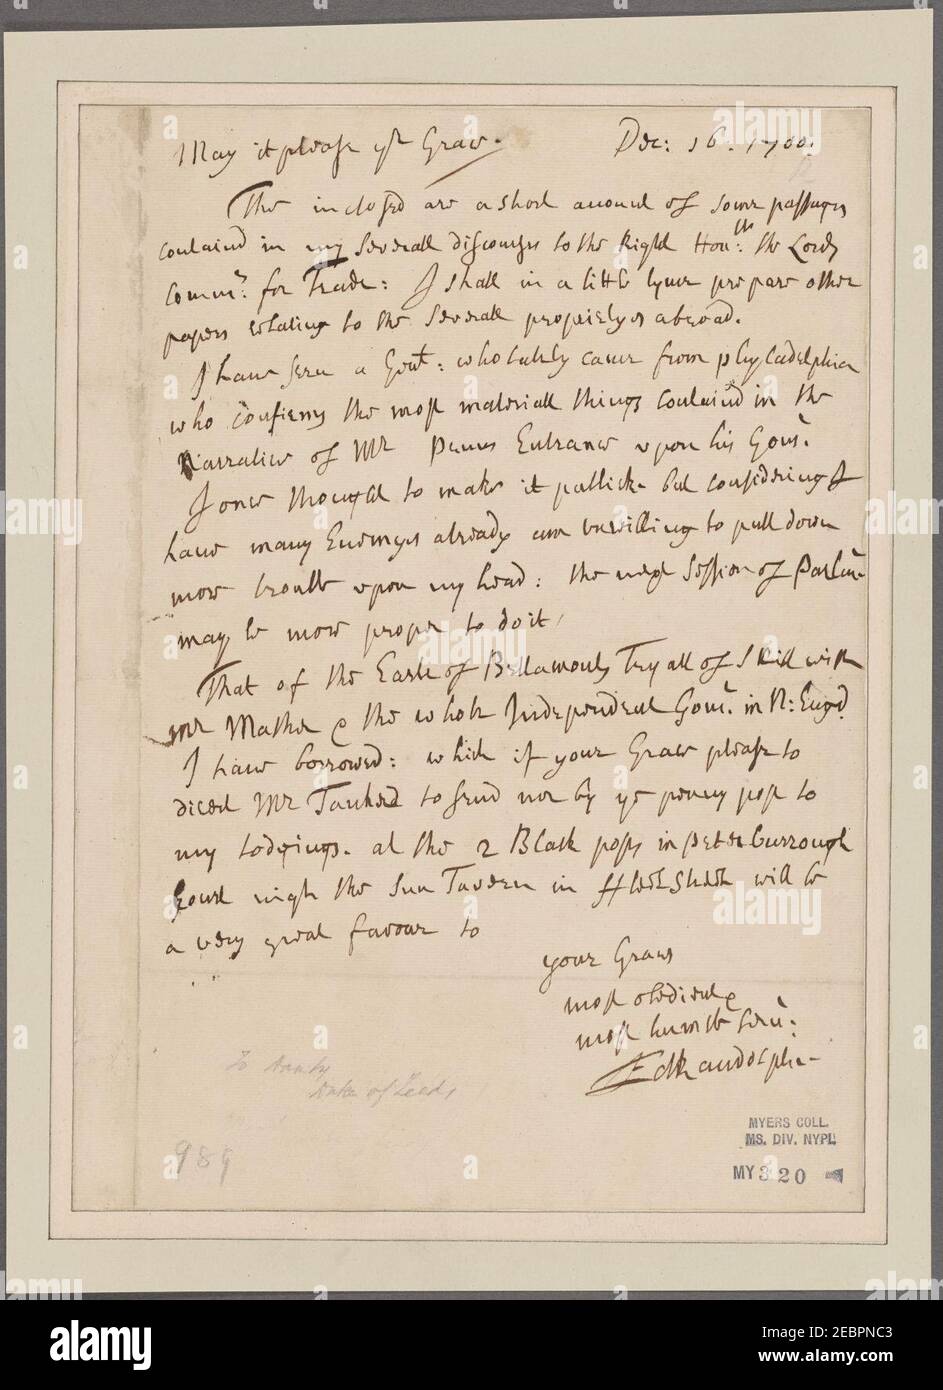 May it please yr Grace. Dec: 16. 1700.
The inclosed are a short account of some passages
contained in my severall discourses to the Right Honble: the Lords
Commrs: for Trade: I shall in a little tyme prepare other
papers relating to the severall propriety es abroad.
I have seen a Gent: who lately came from phyladelphia
who confirms the most materiall things contained in the
Narrative of Mr Penns Entrance upon his Govmt.
I once thought to make it publick but considering I
have many Enemyes already am unwilling to pull down
more trouble upon my head: the next Session of Parlmt
may be more proper to do it.
That of the Earle of Bellamonts Tryall of Skill with
Mr Mather & the whole Independent Govmt. in N: Engd.
I have borrowed: which if your Grace please to
direct Mr to send me by ye penny post to
my Lodgings. at the 2 Black posts in peterburrough
Court nigh the Sun Tavern in ffleetStreet will be
a very great favour to
your Graces
most obedient &
most humble servt:
Ed Randolph
To Danby
Duke of Leeds
989
MYERS COLL.
MS. DIV. NYPL
MY 3 20
alamy
Image ID: 2EBPNC3
www.alamy.com